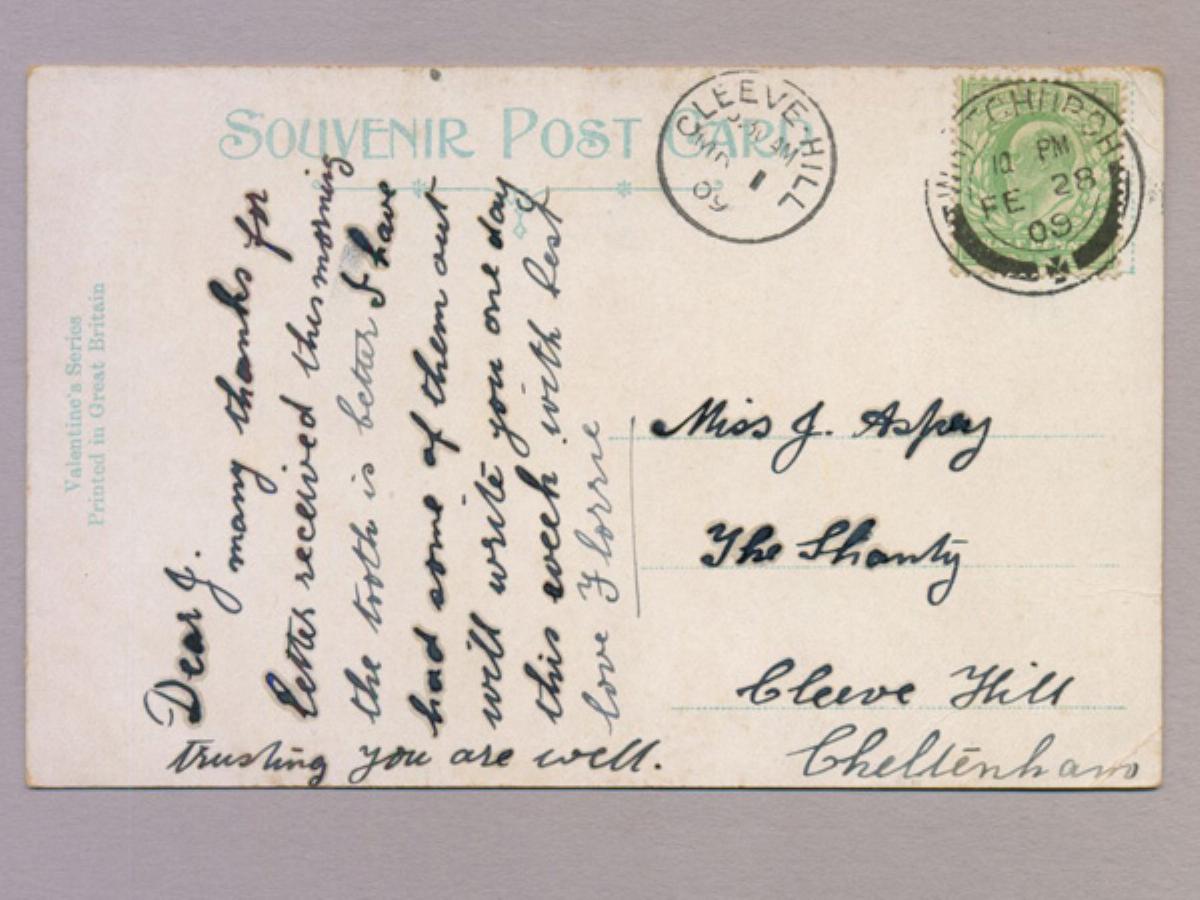 SOUVENIR POST CARD
CLEEVE-HILL
AM
MR 1
09
WHITCHURCH
10 PM
FE 28
09
Valentine's Series
Printed in Great Britain
Dear J.
many thanks for
letter received this morning
the tooth is better I have
had some of them out
will write you one day
this week with best
love Florrie
trusting you are well.
Miss J. Aspey
The Shanty
Cleeve Hill
Cheltenham